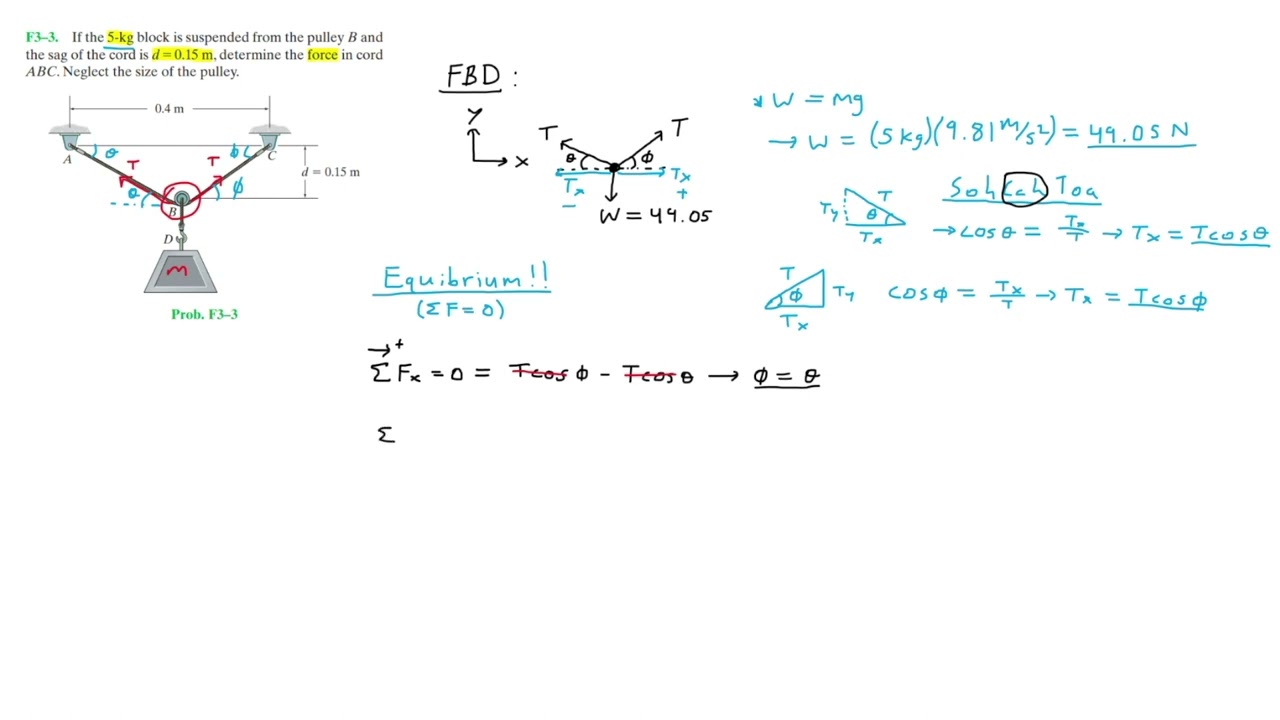 F3–3. If the 5-kg block is suspended from the pulley B and
the sag of the cord is d = 0.15 m, determine the force in cord
ABC. Neglect the size of the pulley.
0.4 m
A
θ
T
T
φ
C
d = 0.15 m
θ
φ
B
D
m
Prob. F3–3
FBD :
Y
X
T
T
θ
φ
Tx
Tx
−
+
W = 49.05
* W = mg
→ W = (5 kg)(9.81 m/s²) = 49.05 N
Soh Cah Toa
Ty
T
θ
Tx
→ cos θ = Tx/T → Tx = T cos θ
T
φ
Ty
Tx
cos φ = Tx/T → Tx = T cos φ
Equibrium!!
(Σ F = 0)
→+
Σ Fx = 0 = T cos φ − T cos θ → φ = θ
Σ